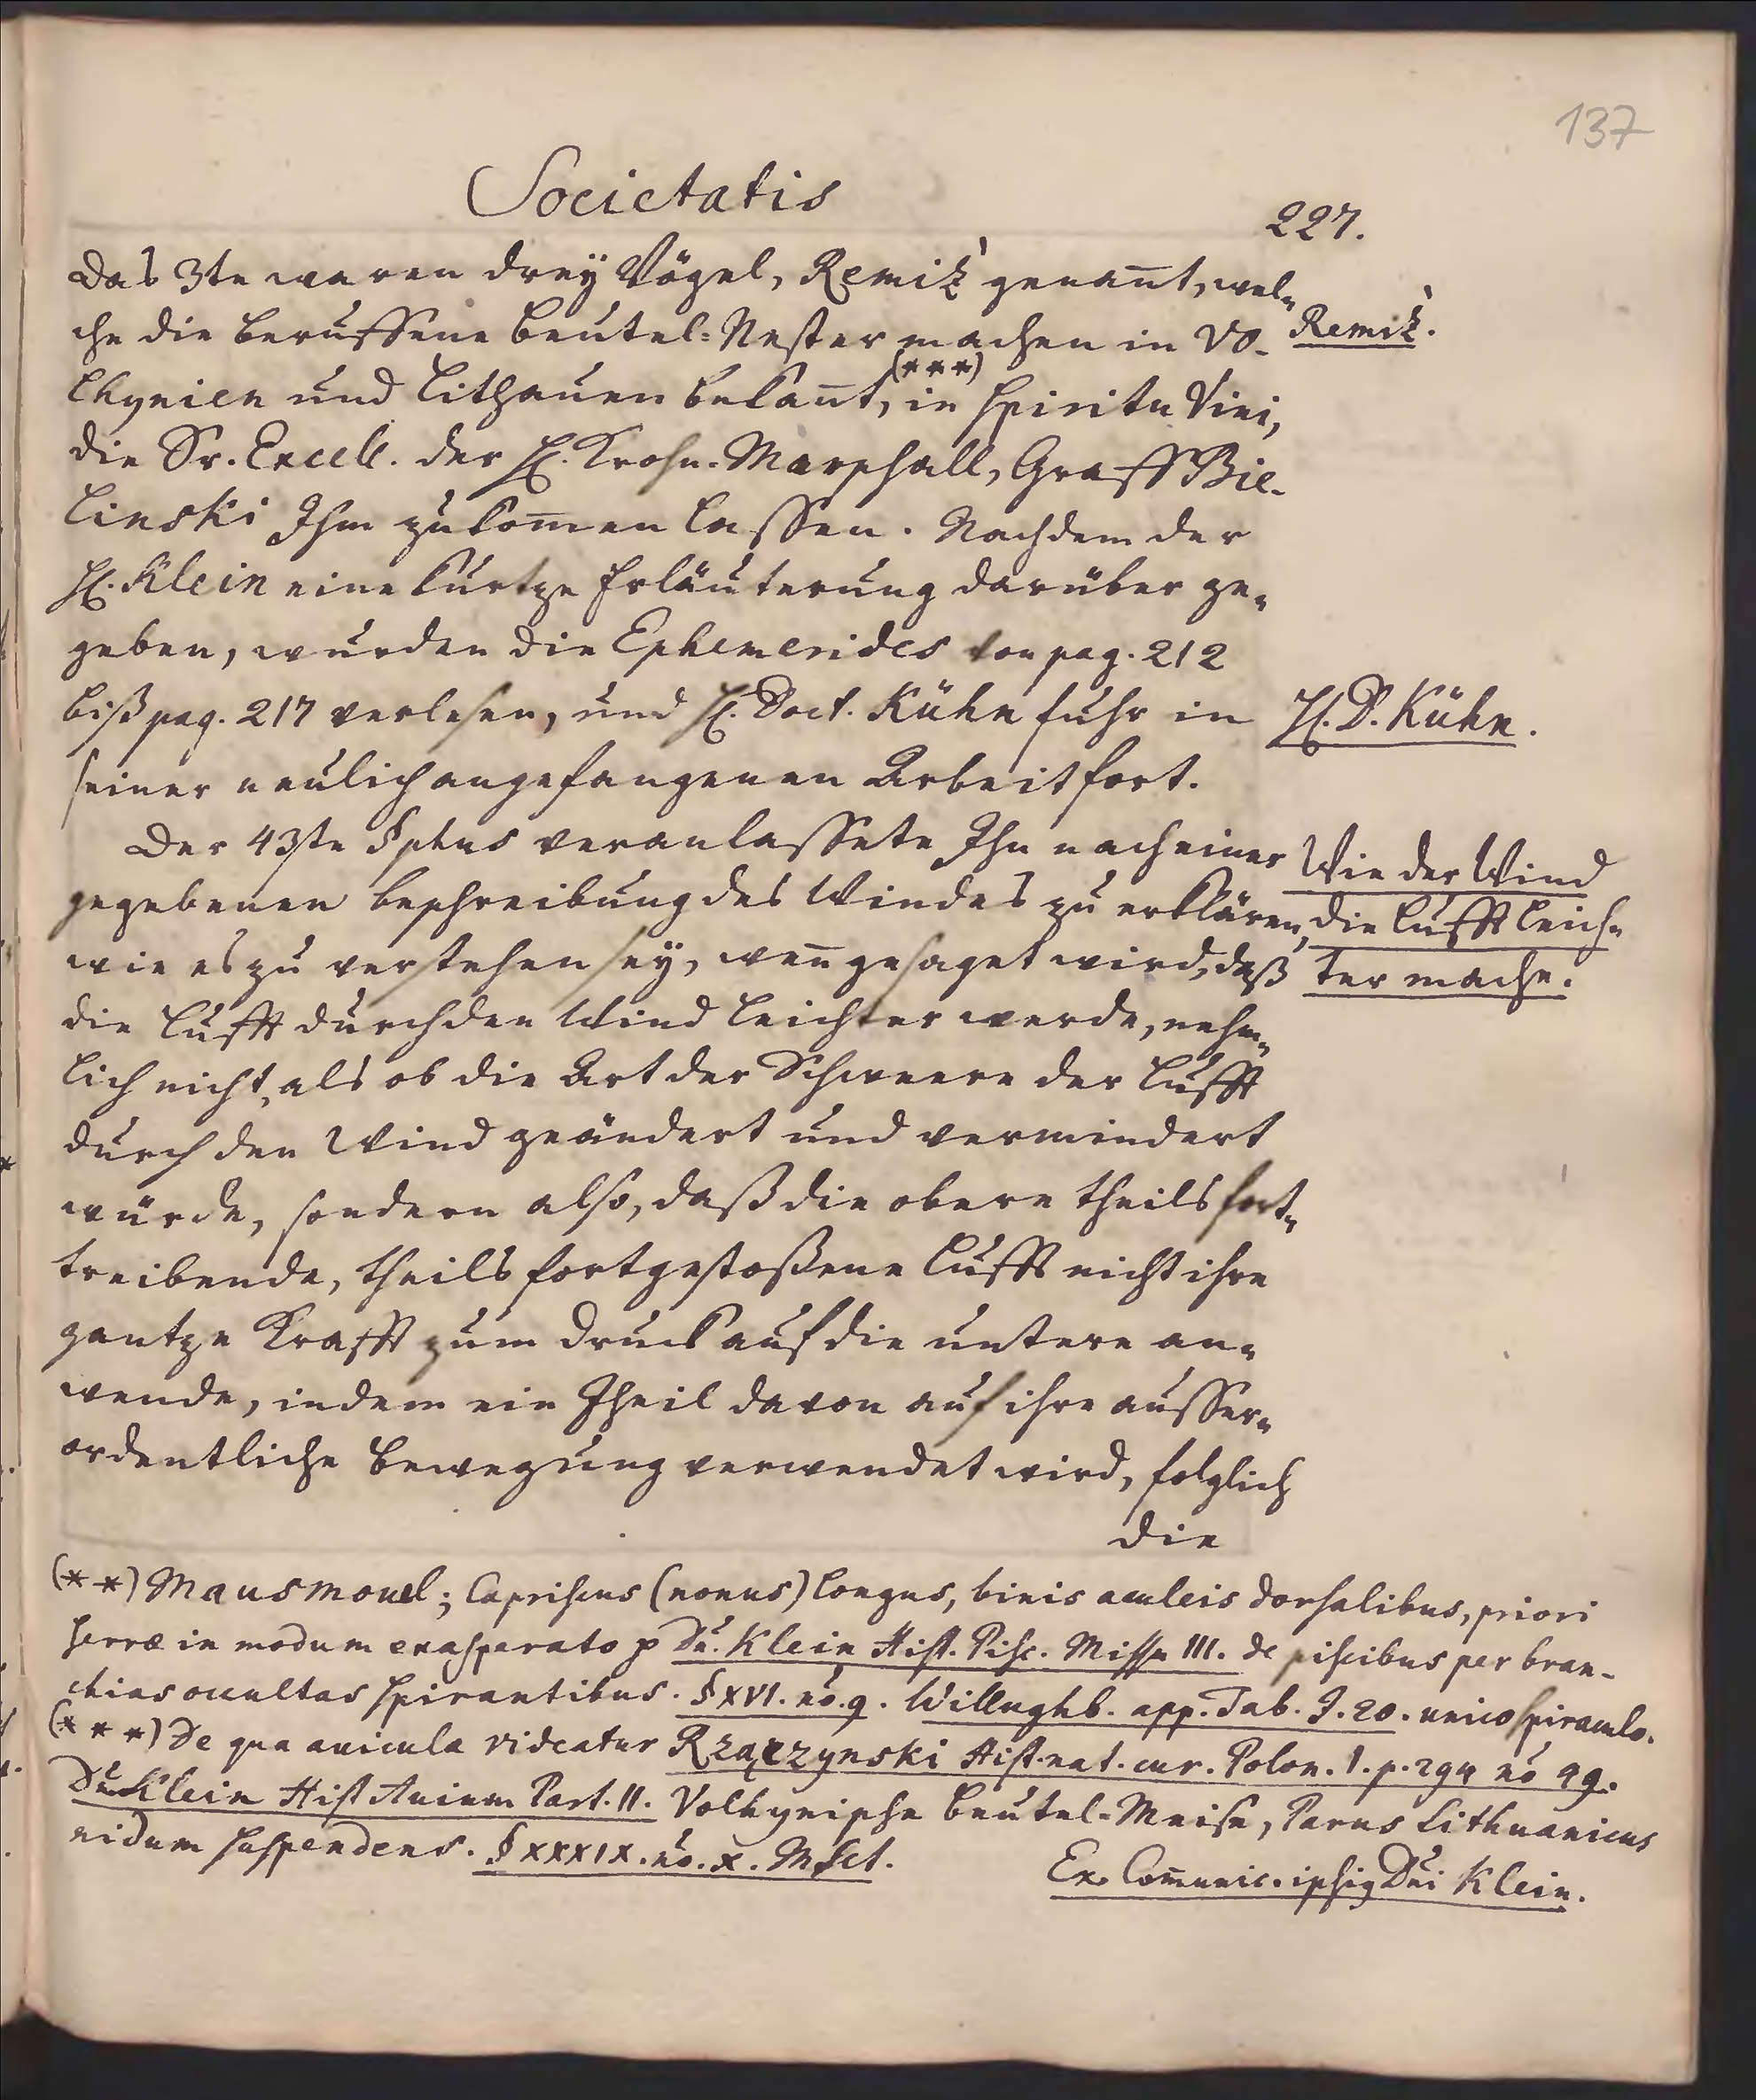 137
Societatis
227.
Das 3te waren drey Vögel, Remiz̀ genan̄t, wel-
che die beruffene Beutel-Nester machen in Vo-
Remiz̀.
lhynien und Lithauen bekan̄t, (***) in Spiritu Vini,
die Sr. Excell. der H. Krohn-Marschall, Graff Bie-
linski Ihm zukom̄en lassen. Nachdem der
H. Klein eine kurtze Erläuterung darüber ge-
geben, wurden die Ephemerides von pag. 212
biß pag. 217 verlesen, und H. Doct. Kühn fuhr in
H. D. Kühn.
seiner neulich angefangenen Arbeit fort.
Der 43ste §phus veranlassete Ihn nach einer
Wie der Wind
gegebenen Beschreibung des Windes zu erklären,
die Lufft leich-
wie es zu verstehen sey, wen̄ gesaget wird, daß
ter mache.
die Lufft durch den Wind leichter werde, nehm-
lich nicht, als ob die Art der Schweere der Lufft
durch den Wind geändert und vermindert
würde, sondern also, daß die obere theils fort-
treibende, theils fortgestoßene Lufft nicht ihre
gantze Krafft zum Druck auf die untere an-
wende, indem ein Theil davon auf ihre ausser-
ordentliche Bewegung verwendet wird, folglich
die
(**) Mausmoud; Capriscus (nonus) longus, binis aculeis dorsalibus, priori
serræ in modum exasperato p Dn. Klein Hist. Pisc. Missu III. de piscibus per bran-
chias occultas spirantibus. § XVI. no. 9. Willughb. app. Tab. I. 20. unico spiraculo.
(***) De qua avicula videatur Rzączynski Hist. nat. cur. Polon. I. p. 294 no 99.
Dn. Klein Hist Avium Part. II. Volhynische Beutel-Meise, Parus Lithuanicus
nidum suspendens. § XXXIX. no. X. Msct.
Ex. Com̄unic. ipsig Dni Klein.